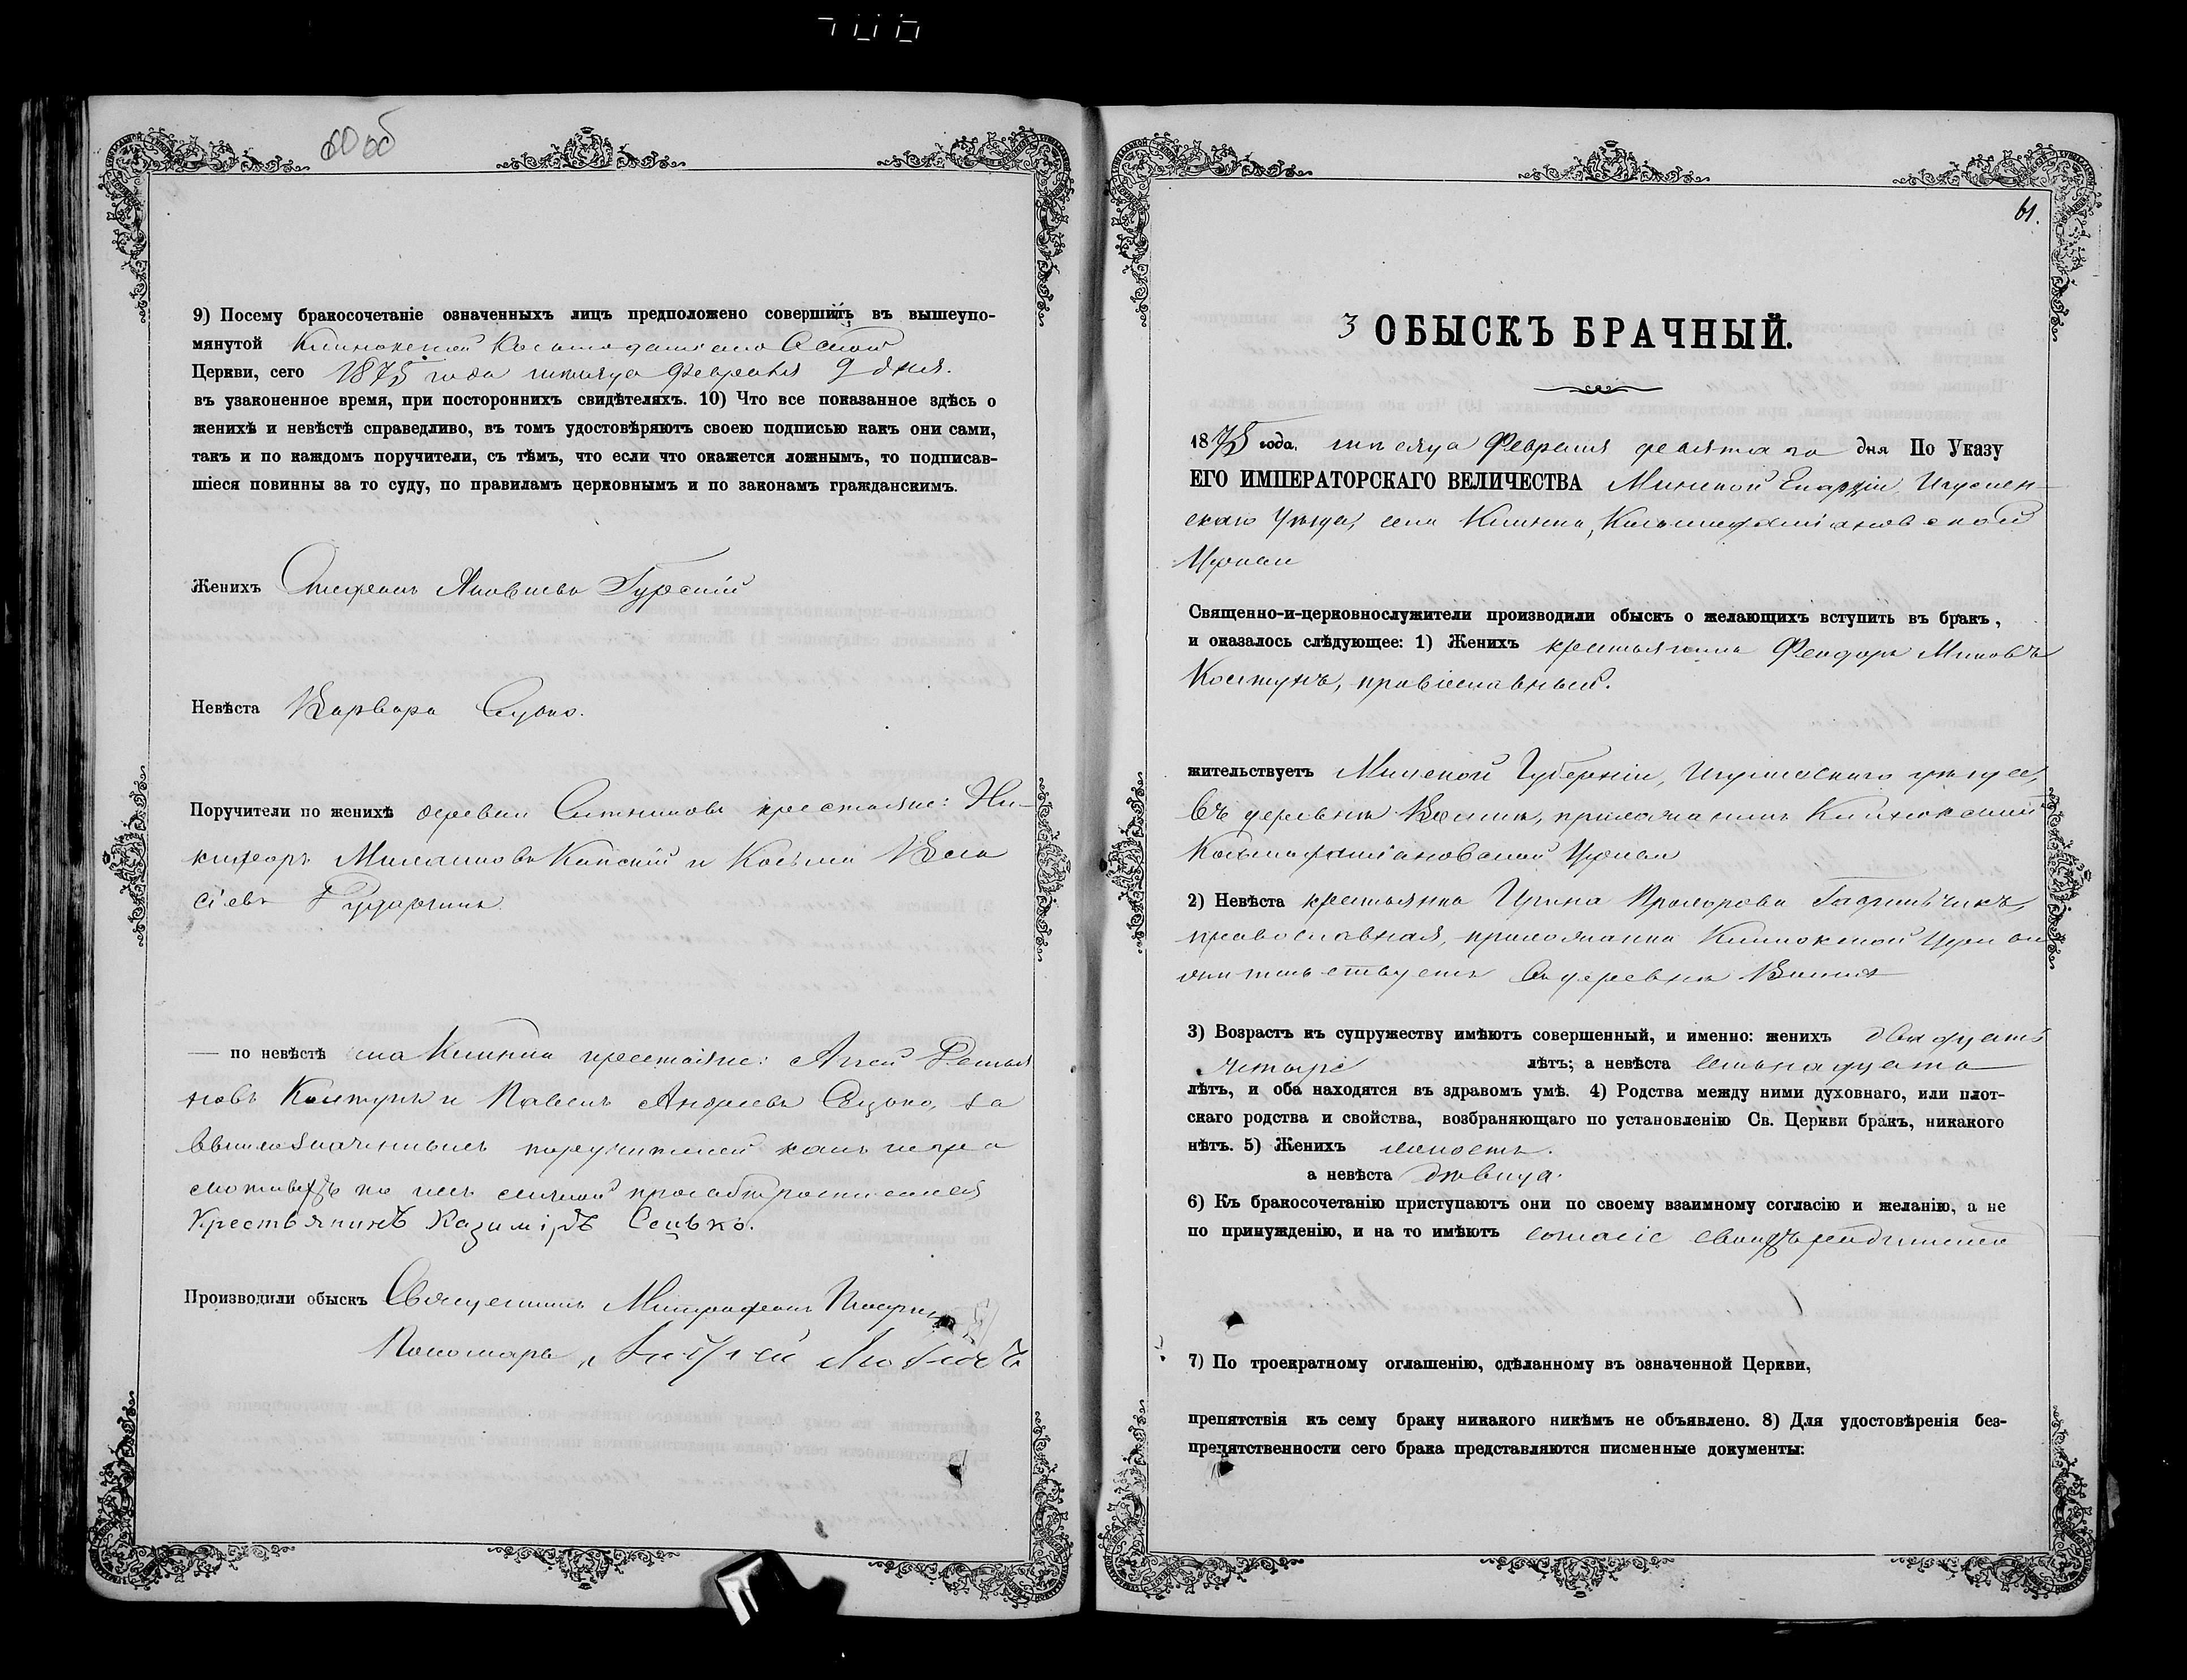 60 об
9) Посему бракосочетаніе означенныхъ лицъ предположено совершить въ вышеупо-
мянутой
Церкви, сего 1875 года мѣсяца Февраля 9 дня.
въ узаконенное время, при постороннихъ свидѣтеляхъ. 10) Что все показанное здѣсь о
женихѣ и невѣстѣ справедливо, въ томъ удостовѣряютъ своею подписью какъ они сами,
такъ и по каждомъ поручители, съ тѣмъ, что если что окажется ложнымъ, то подписав-
шіеся повинны за то суду, по правиламъ церковнымъ и по законамъ гражданскимъ.
Женихъ Стефанъ Яковлевъ Гурскій
Невѣста Варвара Сцько.
Поручители по женихѣ деревни крестьяне: Ни-
кифоръ и Косьма Васи
сіевъ
— по невѣстѣ села крестьяне: Демья
новъ Костунъ и Павелъ Андреевъ за
поручителей какъ негра
мотныхъ по ихъ личной прозбѣ росписался
Крестьянинъ Казиміръ Сецько.
Производили обыскъ Священникъ Митрофанъ
Пономарь
61.
3 ОБЫСКЪ БРАЧНЫЙ.
1875 года. мѣсяца Февраля девятаго дня По Указу
ЕГО ИМПЕРАТОРСКАГО ВЕЛИЧЕСТВА Минской Епархіи, Игумен-
скаго Уѣзда, села Клинка, Косьмодаміановской
Церкви
Священно-и-церковнослужители производили обыскъ о желающихъ вступить въ бракъ,
и оказалось слѣдующее: 1) Женихъ крестьянинъ Феодоръ Миновъ
Костунъ, православный.
жительствуетъ Минской Губерніи, Игуменскаго уѣзда,
въ деревнѣ прихожанинъ Клинокской
Косьмодаміановской Церкви
2) Невѣста крестьянка Ирина Прохорова
православная, прихожанка Клинокской Церкви
жительствуетъ въ деревнѣ
3) Возрастъ къ супружеству имѣютъ совершенный, и именно: женихъ двадцать
четыре лѣтъ; а невѣста семьнадцать
лѣтъ, и оба находятся въ здравомъ умѣ. 4) Родства между ними духовнаго, или плот-
скаго родства и свойства, возбраняющаго по установленію Св. Церкви бракъ, никакого
нѣтъ. 5) Женихъ холостъ.
а невѣста дѣвица.
6) Къ бракосочетанію приступаютъ они по своему взаимному согласію и желанію, а не
по принужденію, и на то имѣютъ согласіе своихъ родителей
7) По троекратному оглашенію, сдѣланному въ означенной Церкви,
препятствія къ сему браку никакого никѣмъ не объявлено. 8) Для удостовѣренія без-
препятственности сего брака представляются писменные документы: